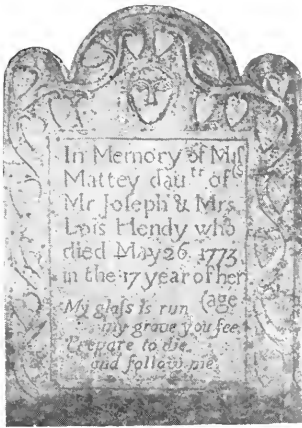 In Memory of Miſs
Mattey dau.tr of
Mr Joſeph & Mrs.
Lois Hendy who
died May 26 1773
in the 17 year of her
(age
My glaſs is run
my grave you ſee,
Prepare to die
and follow me.